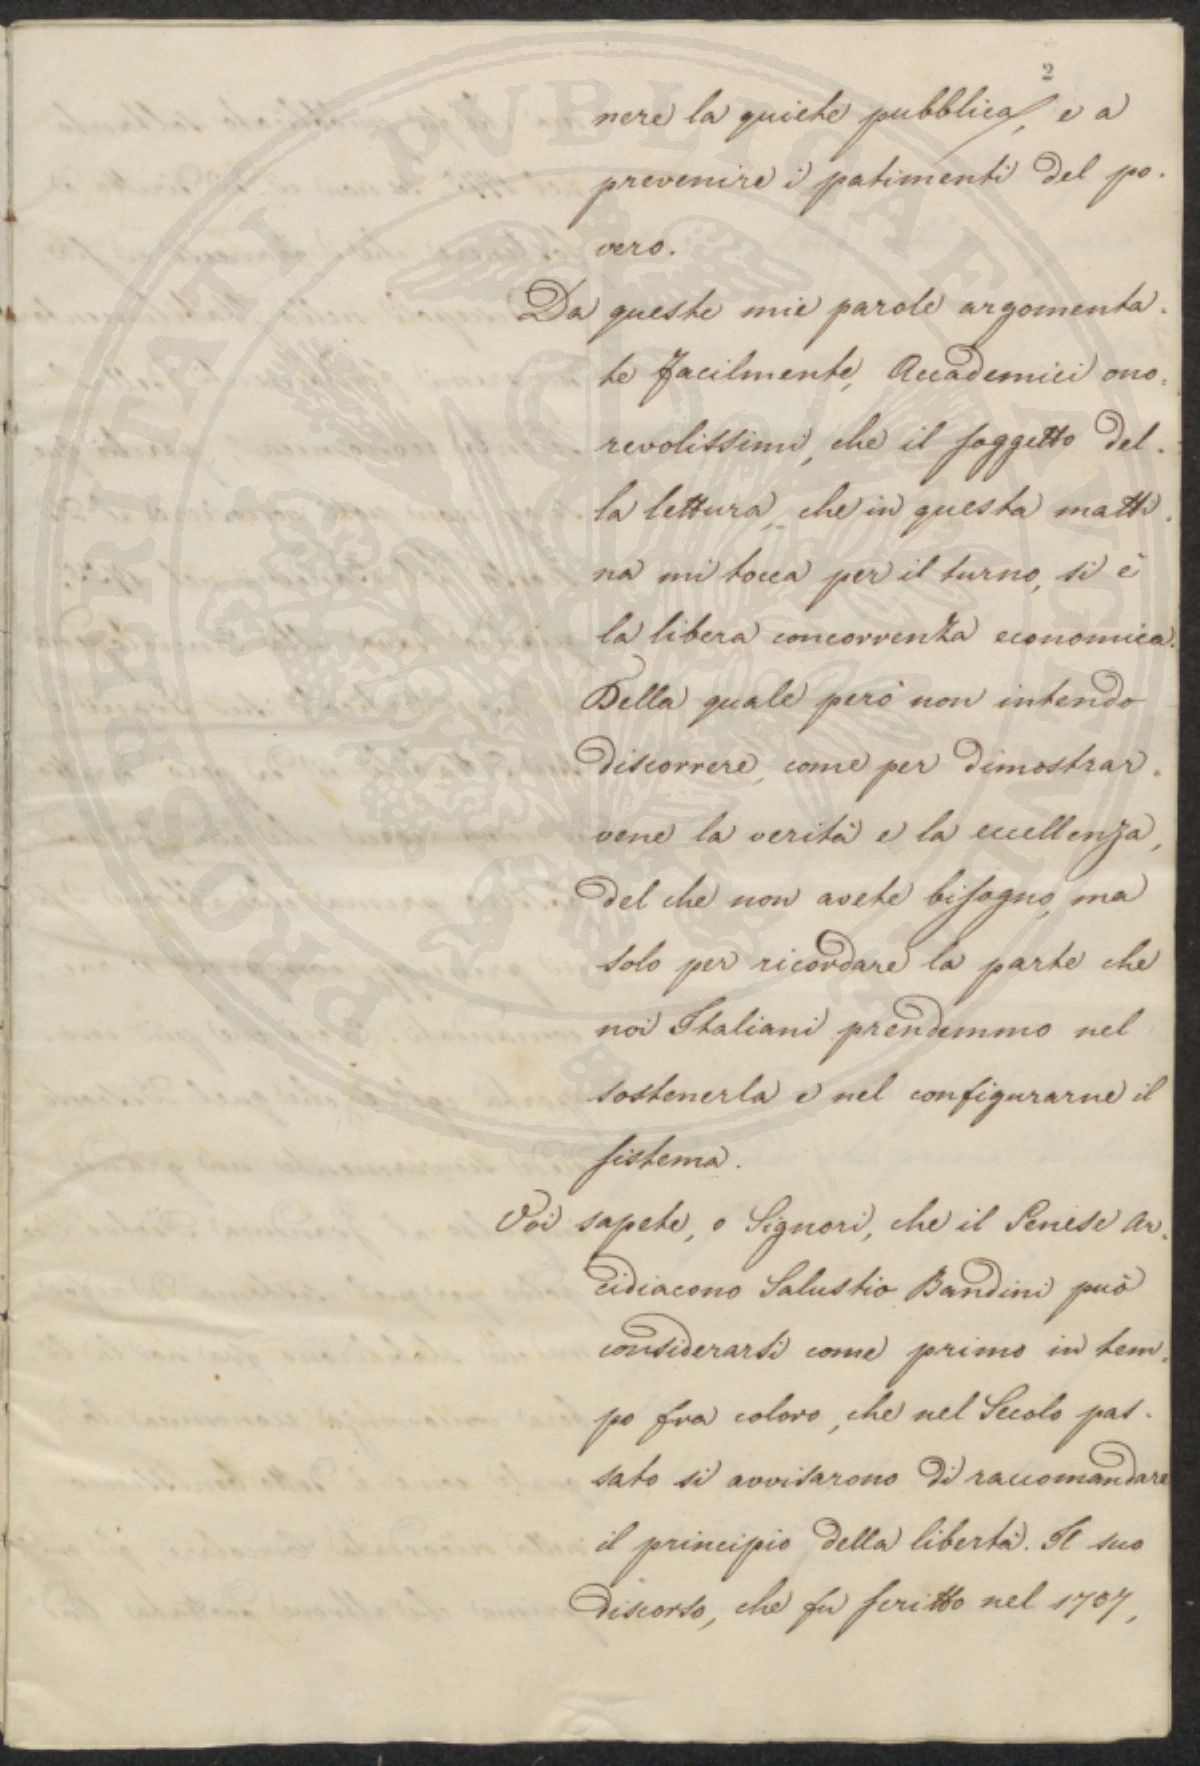 2
nere la quiete pubblica, e a
prevenire i patimenti del po.
vero.
Da queste mie parole argomenta.
te facilmente, Accademici ono.
revolissimi, che il soggetto del.
la lettura, che in questa matti.
na mi tocca per il turno, si è
la libera concorrenza economica.
Della quale però non intendo
discorrere, come per dimostrar.
vene la verità e la eccellenza,
del che non avete bisogno, ma
solo per ricordare la parte che
noi Italiani prendemmo nel
sostenerla e nel configurarne il
sistema.
Voi sapete, o Signori, che il Senese Ar.
cidiacono Salustio Bandini può
considerarsi come primo in tem.
po fra coloro, che nel Secolo pas.
sato si avvisarono di raccomandare
il principio della libertà. Il suo
discorso, che fu scritto nel 1737,
PROSPERITATI PVBLICAE AVGENDAE